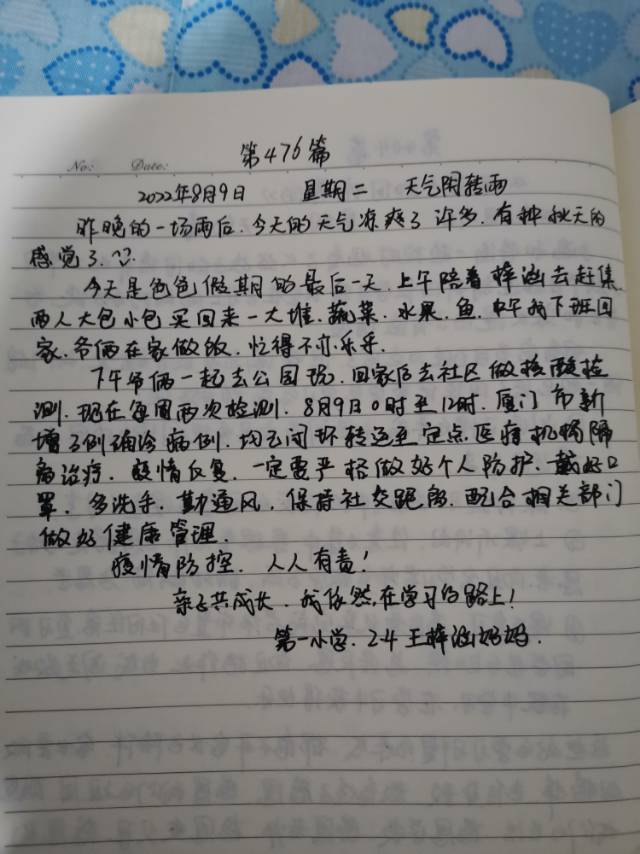 No: Date:
第476篇
2022年8月9日 星期二 天气阴转雨
昨晚的一场雨后.今天的天气凉爽了许多.有种秋天的
感觉了.
今天是爸爸假期的最后一天.上午陪着梓涵去赶集.
两人大包小包买回来一大堆.蔬菜.水果.鱼.中午我下班回
家.爷俩在家做饭.忙得不亦乐乎.
下午爷俩一起去公园玩.回家后去社区做核酸检
测.现在每周两次检测.8月9日0时至12时.厦门市新
增3例确诊病例.均已闭环转运至定点医疗机构隔
离治疗.疫情反复.一定要严格做好个人防护.戴好口
罩.多洗手.勤通风.保持社交距离.配合相关部门
做好健康管理.
疫情防控.人人有责!
亲子共成长.我依然在学习的路上!
第一小学.2-4王梓涵妈妈.